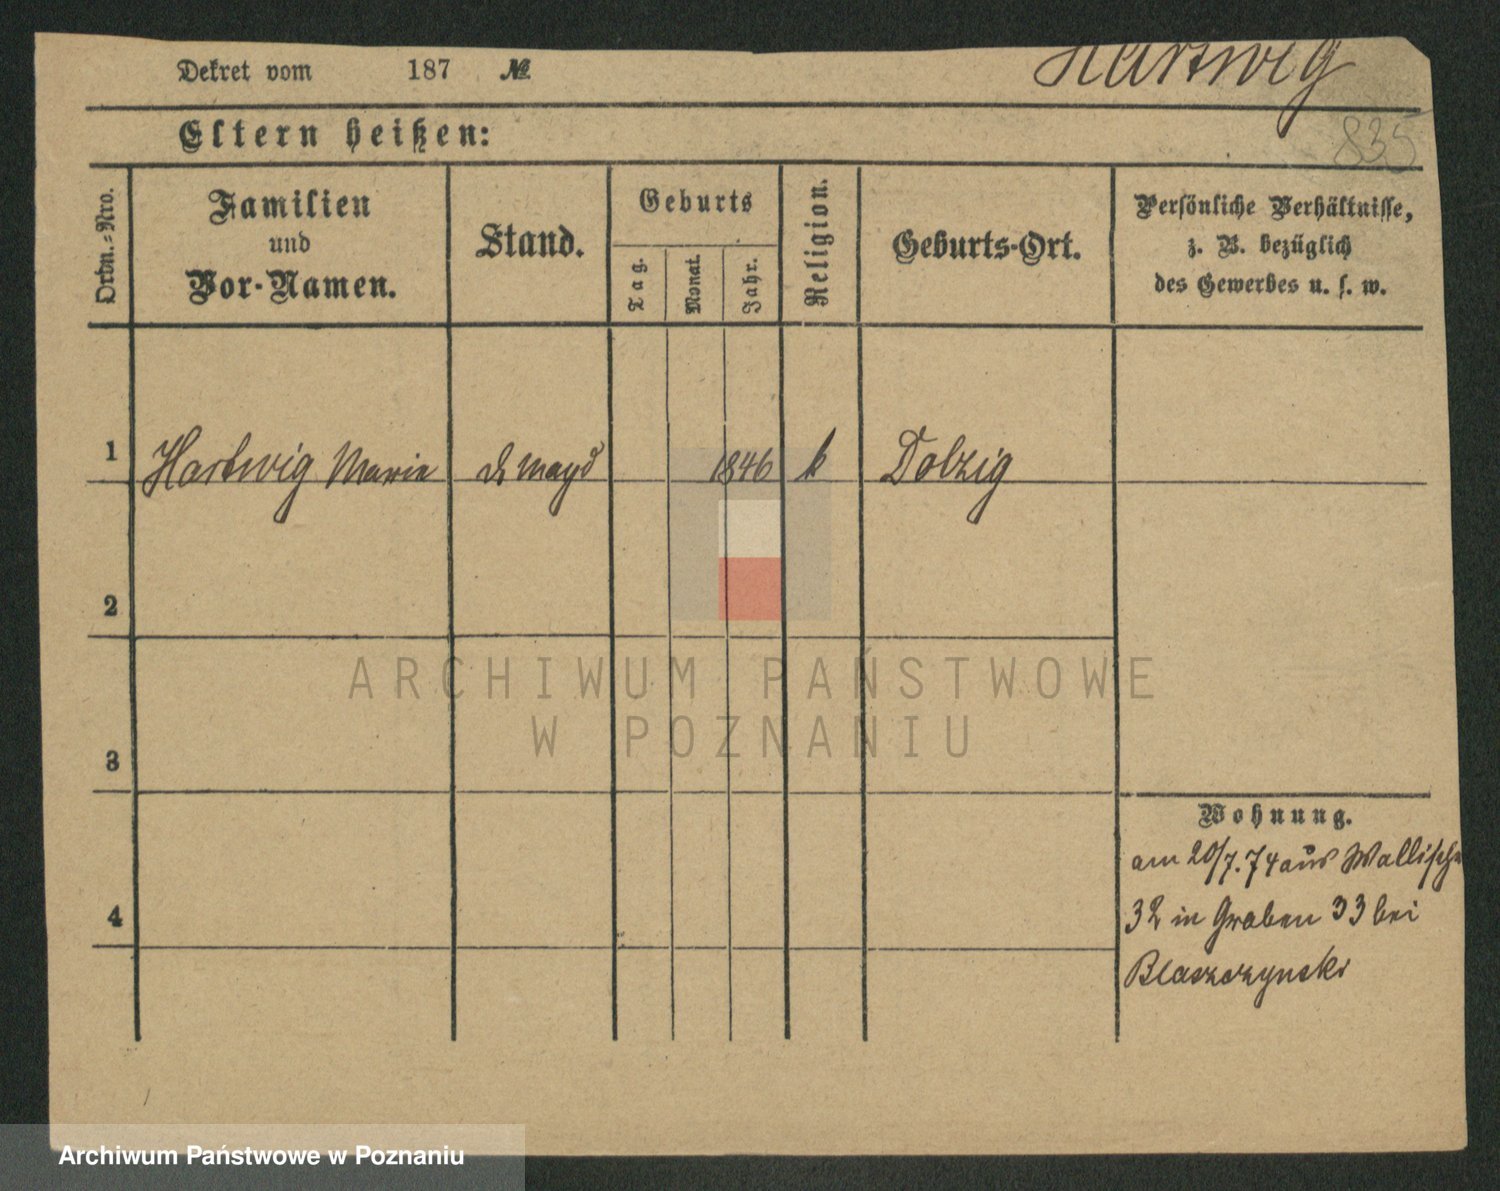 Dekret vom 187 №
Hartwig
835
Eltern heißen:
Ordn.-Nro.
Familien
und
Vor-Namen.
Stand.
Geburts
Tag.
Monat.
Jahr.
Religion.
Geburts-Ort.
Persönliche Verhältnisse,
z. B. bezüglich
des Gewerbes u. s. w.
1 Hartwig Marie d mayd 1846 k Dolzig
2
3
4
ARCHIWUM PAŃSTWOWE
W POZNANIU
Wohnung.
am 20/7.74 aus Wallische
32 in Graben 33 bei
Blaszczynski
Archiwum Państwowe w Poznaniu